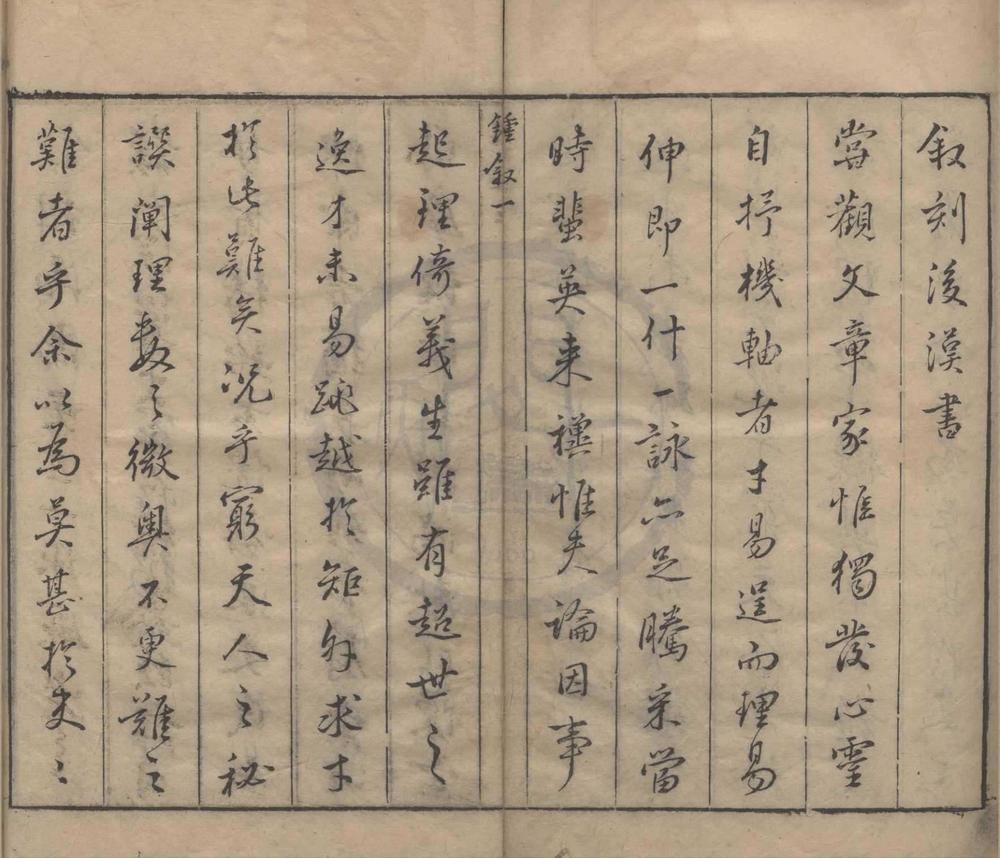 叙刻後漢書
嘗觀文章家惟獨發心靈
自抒機軸者才易逞而理易
伸即一什一詠亦足騰采當
時蜚英来禩惟夫論因事
鍾叙一
起理倚義生雖有超世之
逸才未易跳越於矩外求才
於此難矣况乎窮天人之秘
譔闡理數之微奥不更難之
難者乎余以為莫甚於史〻